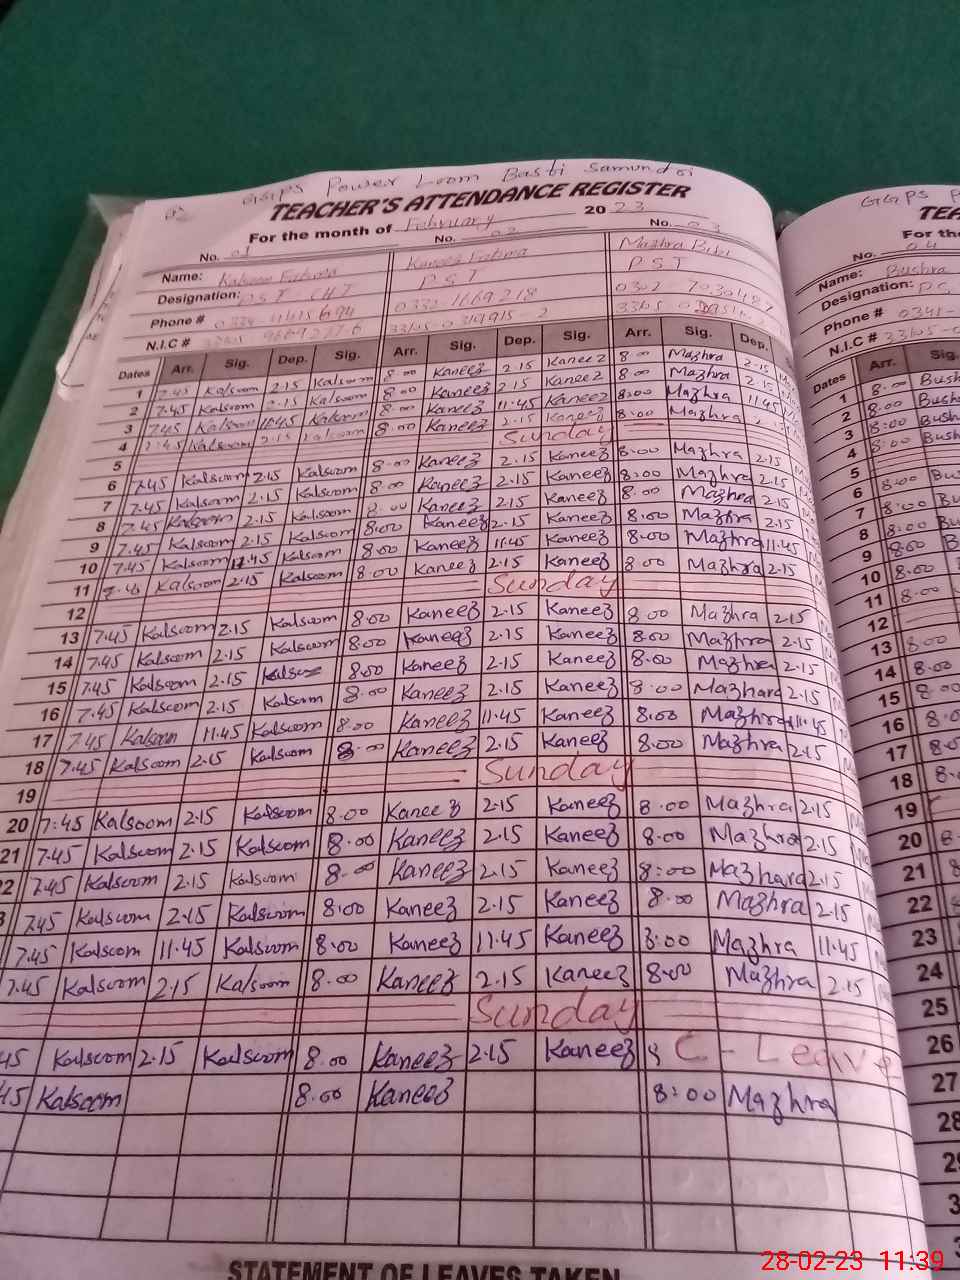 GGPS Power Loom Basti Samundri
TEACHER'S ATTENDANCE REGISTER
For the month of February 2023
No. 01 No. 02 No. 03
Name: Kalsoom Fatima Kaneez Fatima Mazhra Bibi
Designation: PST PST
Phone # 0332-1669218
N.I.C #
Dates Arr. Sig. Dep. Sig. Arr. Sig. Dep. Sig. Arr. Sig. Dep.
1 7.45 Kalsoom 2.15 Kalsoom 8.00 Kaneez 2.15 Kaneez 8.00 Mazhra 2.15
2 7.45 Kalsoom 2.15 Kalsoom 8.00 Kaneez 2.15 Kaneez 8.00 Mazhra 2.15
3 7.45 Kalsoom 11.45 Kalsoom 8.00 Kaneez 11.45 Kaneez 8:00 Mazhra 11.45
4 7.45 Kalsoom 2.15 Kalsoom 8.00 Kaneez 2.15 Kaneez 8:00 Mazhra
5 Sunday
6 7.45 Kalsoom 2.15 Kalsoom 8.00 Kaneez 2.15 Kaneez 8.00 Mazhra 2.15
7 7.45 Kalsoom 2.15 Kalsoom 8.00 Kaneez 2.15 Kaneez 8:00 Mazhra 2.15
8 7.45 Kalsoom 2.15 Kalsoom 8.00 Kaneez 2.15 Kaneez 8.00 Mazhra 2.15
9 7.45 Kalsoom 2.15 Kalsoom 8.00 Kaneez 2.15 Kaneez 8.00 Mazhra 2.15
10 7.45 Kalsoom 11.45 Kalsoom 8.00 Kaneez 11.45 Kaneez 8.00 Mazhra 11.45
11 7.45 Kalsoom 2.15 Kalsoom 8.00 Kaneez 2.15 Kaneez 8.00 Mazhra 2.15
12 Sunday
13 7.45 Kalsoom 2.15 Kalsoom 8.00 Kaneez 2.15 Kaneez 8.00 Mazhra 2.15
14 7.45 Kalsoom 2.15 8.00 Kaneez 2.15 Kaneez 8.00 Mazhra 2.15
15 7.45 Kalsoom 2.15 Kalsoom 8.00 Kaneez 2.15 Kaneez 8.00 Mazhra 2.15
16 7.45 Kalsoom 2.15 Kalsoom 8.00 Kaneez 2.15 Kaneez 8.00 Mazhara 2.15
17 7.45 Kalsoom 11.45 Kalsoom 8.00 Kaneez 11.45 Kaneez 8.00 Mazhra 11.45
18 7.45 Kalsoom 2.15 Kalsoom 8.00 Kaneez 2.15 Kaneez 8.00 Mazhra 2.15
19 Sunday
20 7:45 Kalsoom 2.15 Kalsoom 8.00 Kaneez 2.15 Kaneez 8.00 Mazhra 2.15
21 7.45 Kalsoom 2.15 Kalsoom 8.00 Kaneez 2.15 Kaneez 8.00 Mazhra 2.15
22 7.45 Kalsoom 2.15 Kalsoom 8.00 Kaneez 2.15 Kaneez 8:00 Mazhara 2.15
7.45 Kalsoom 2.15 Kalsoom 8:00 Kaneez 2.15 Kaneez 8.00 Mazhra 2.15
7.45 Kalsoom 11.45 Kalsoom 8.00 Kaneez 11.45 Kaneez 8:00 Mazhra 11.45
7.45 Kalsoom 2.15 Kalsoom 8.00 Kaneez 2.15 Kaneez 8.00 Mazhra 2.15
Sunday
45 Kalsoom 2.15 Kalsoom 8.00 Kaneez 2.15 Kaneez C-Leave
45 Kalsoom 8.00 Kaneez 8:00 Mazhra
STATEMENT OF LEAVES TAKEN
GGPS P
TEA
For the
No. 04
Name: Bushra
Designation:
Phone # 0341-
N.I.C #
Dates Arr. Sig.
1 8.00 Bush
2 8.00 Bush
3 8:00 Bush
4 8:00 Bush
5
6 8:00 Bu
7 8:00 Bu
8 8:00 Bu
9 8.00 B
10 8.00
11 8.00
12
13 8:00
14 8:00
15
16
17
18
19
20
21
22
23
24
25
26
27
28
28-02-23 11:39